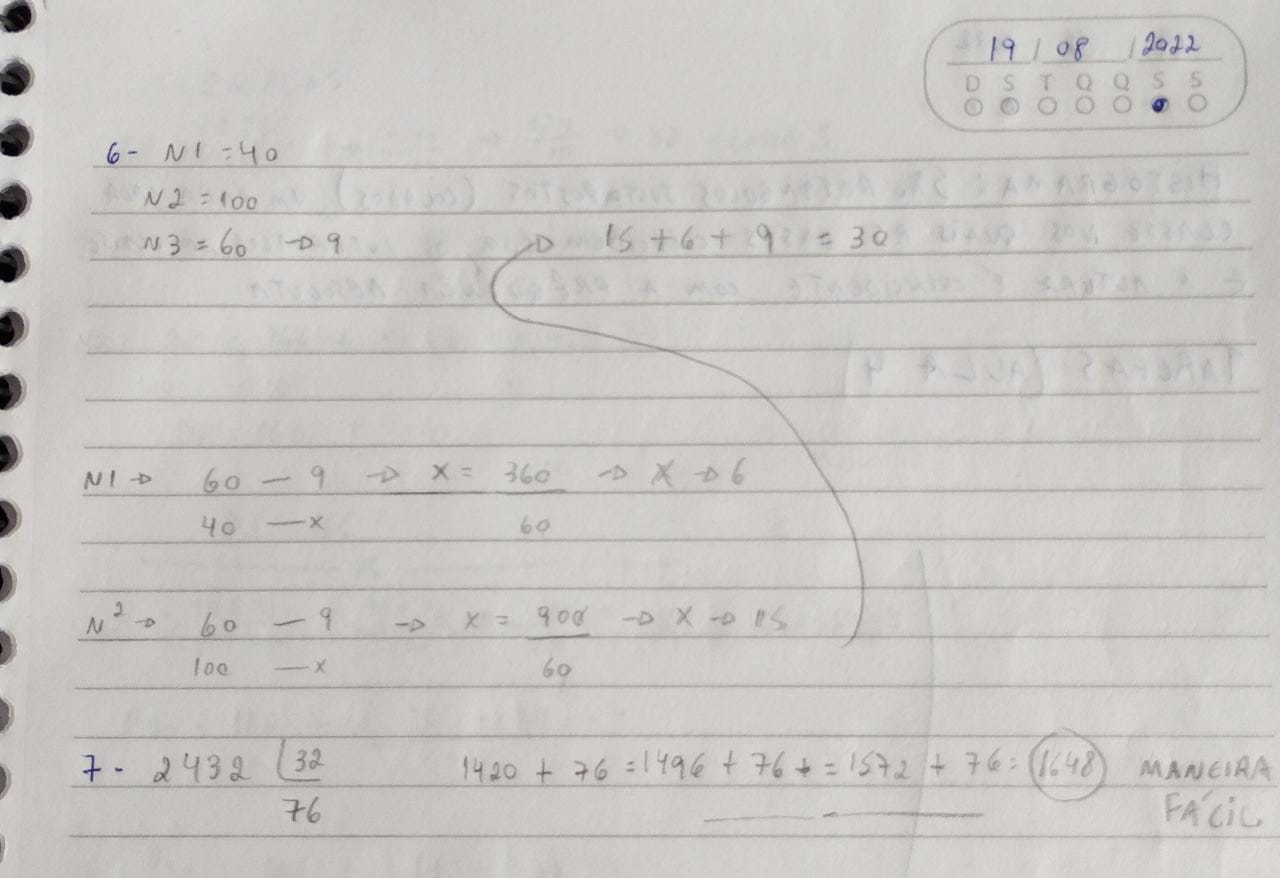 19 / 08 / 2022
D S T Q Q S S
6- N1 = 40
N2 = 100
N3 = 60 → 9 → 15 + 6 + 9 = 30
N1 → 60 — 9 → x = 360 → x → 6
40 — x 60
N2 → 60 — 9 → x = 900 → x → 15
100 — x 60
7- 2432 32 1420 + 76 = 1496 + 76 + = 1572 + 76 = 1648 MANEIRA
76 FÁCIL